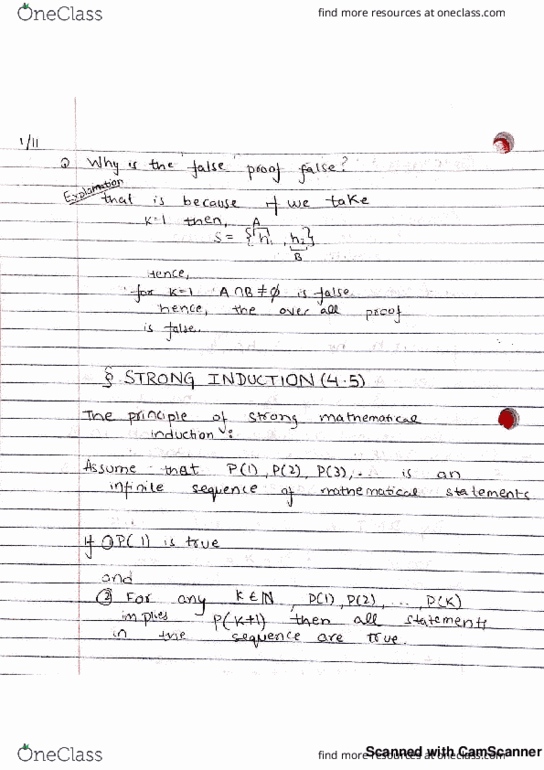 OneClass
find more resources at oneclass.com
1/11
Q Why is the "false" proof false?
Explanation
that is because if we take
K=1 then, A
S = {h₁, h₂}
B
Hence,
for K=1 A∩B≠∅ is false.
hence, the over all proof
is false.
§ STRONG INDUCTION (4.5)
The principle of strong mathematical
induction:
Assume that P(1), P(2), P(3),.. is an
infinite sequence of mathematical statements
If ① P(1) is true
and
② For any K∈ℕ, P(1), P(2), ..., P(K)
implies P(K+1) then all statements
in the sequence are true.
OneClass
find more resources at oneclass.com
Scanned with CamScanner